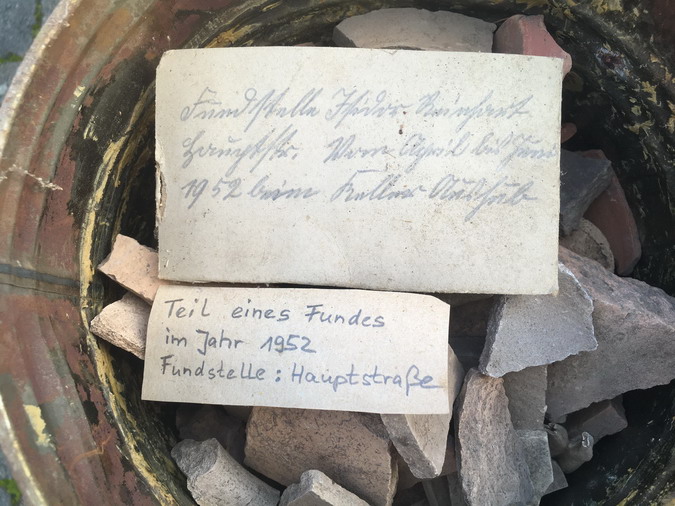 Fundstelle Isidor Reinhart
Hauptstr. Vom April bis Juni
1952 beim Keller Aushub
Teil eines Fundes
im Jahr 1952
Fundstelle: Hauptstraße